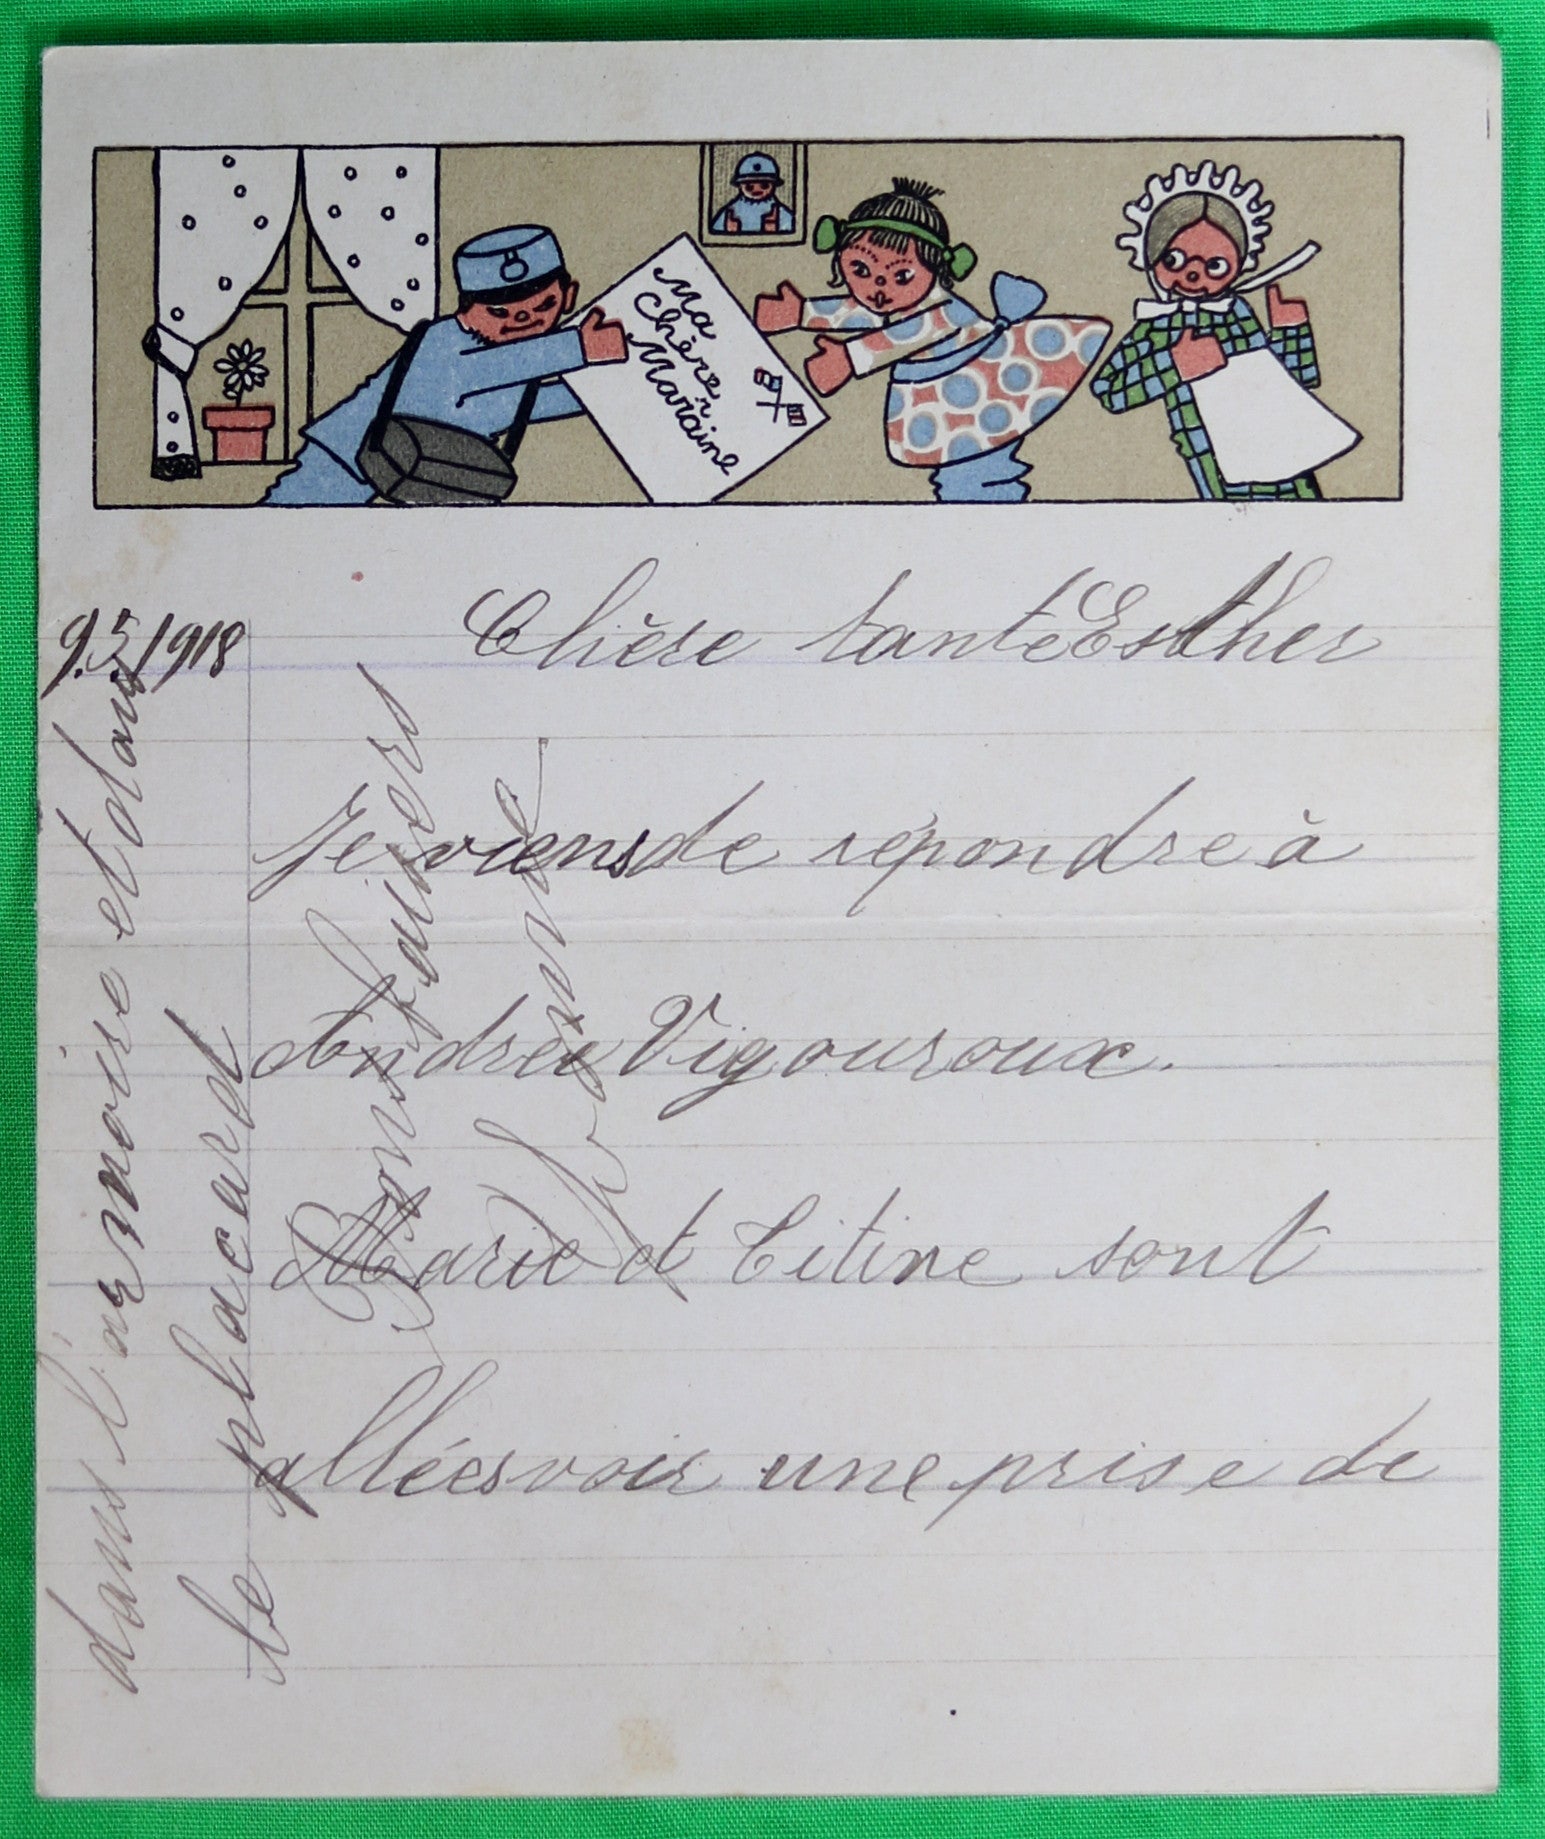 Ma
Chère
Marraine
9.5/1918
Chère tante Esther
Je viens de répondre à
Andrée Vigouroux.
Marie et Titine sont
allées voir une prise de
dans l'armoire et dans
le placard
Bons baisers
Yvonne